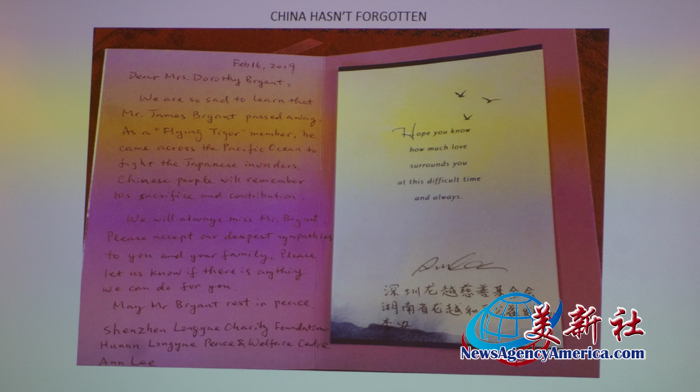 CHINA HASN'T FORGOTTEN
Feb 16, 2019
Dear Mrs. Dorothy Bryant:
We are so sad to learn that
Mr. James Bryant passed away.
As a "Flying Tiger" member, he
came across the Pacific Ocean to
fight the Japanese invaders.
Chinese people will remember
his sacrifice and contribution.
We will always miss Mr. Bryant.
Please accept our deepest sympathies
to you and your family. Please
let us know if there is anything
we can do for you.
May Mr Bryant rest in peace
Shenzhen Longyue Charity Foundation
Hunan Longyue Peace & Welfare
Ann Lee
Hope you know
how much love
surrounds you
at this difficult time
and always.
深圳龙越慈善基金会
湖南省龙越和平公益
美新社
NewsAgencyAmerica.com